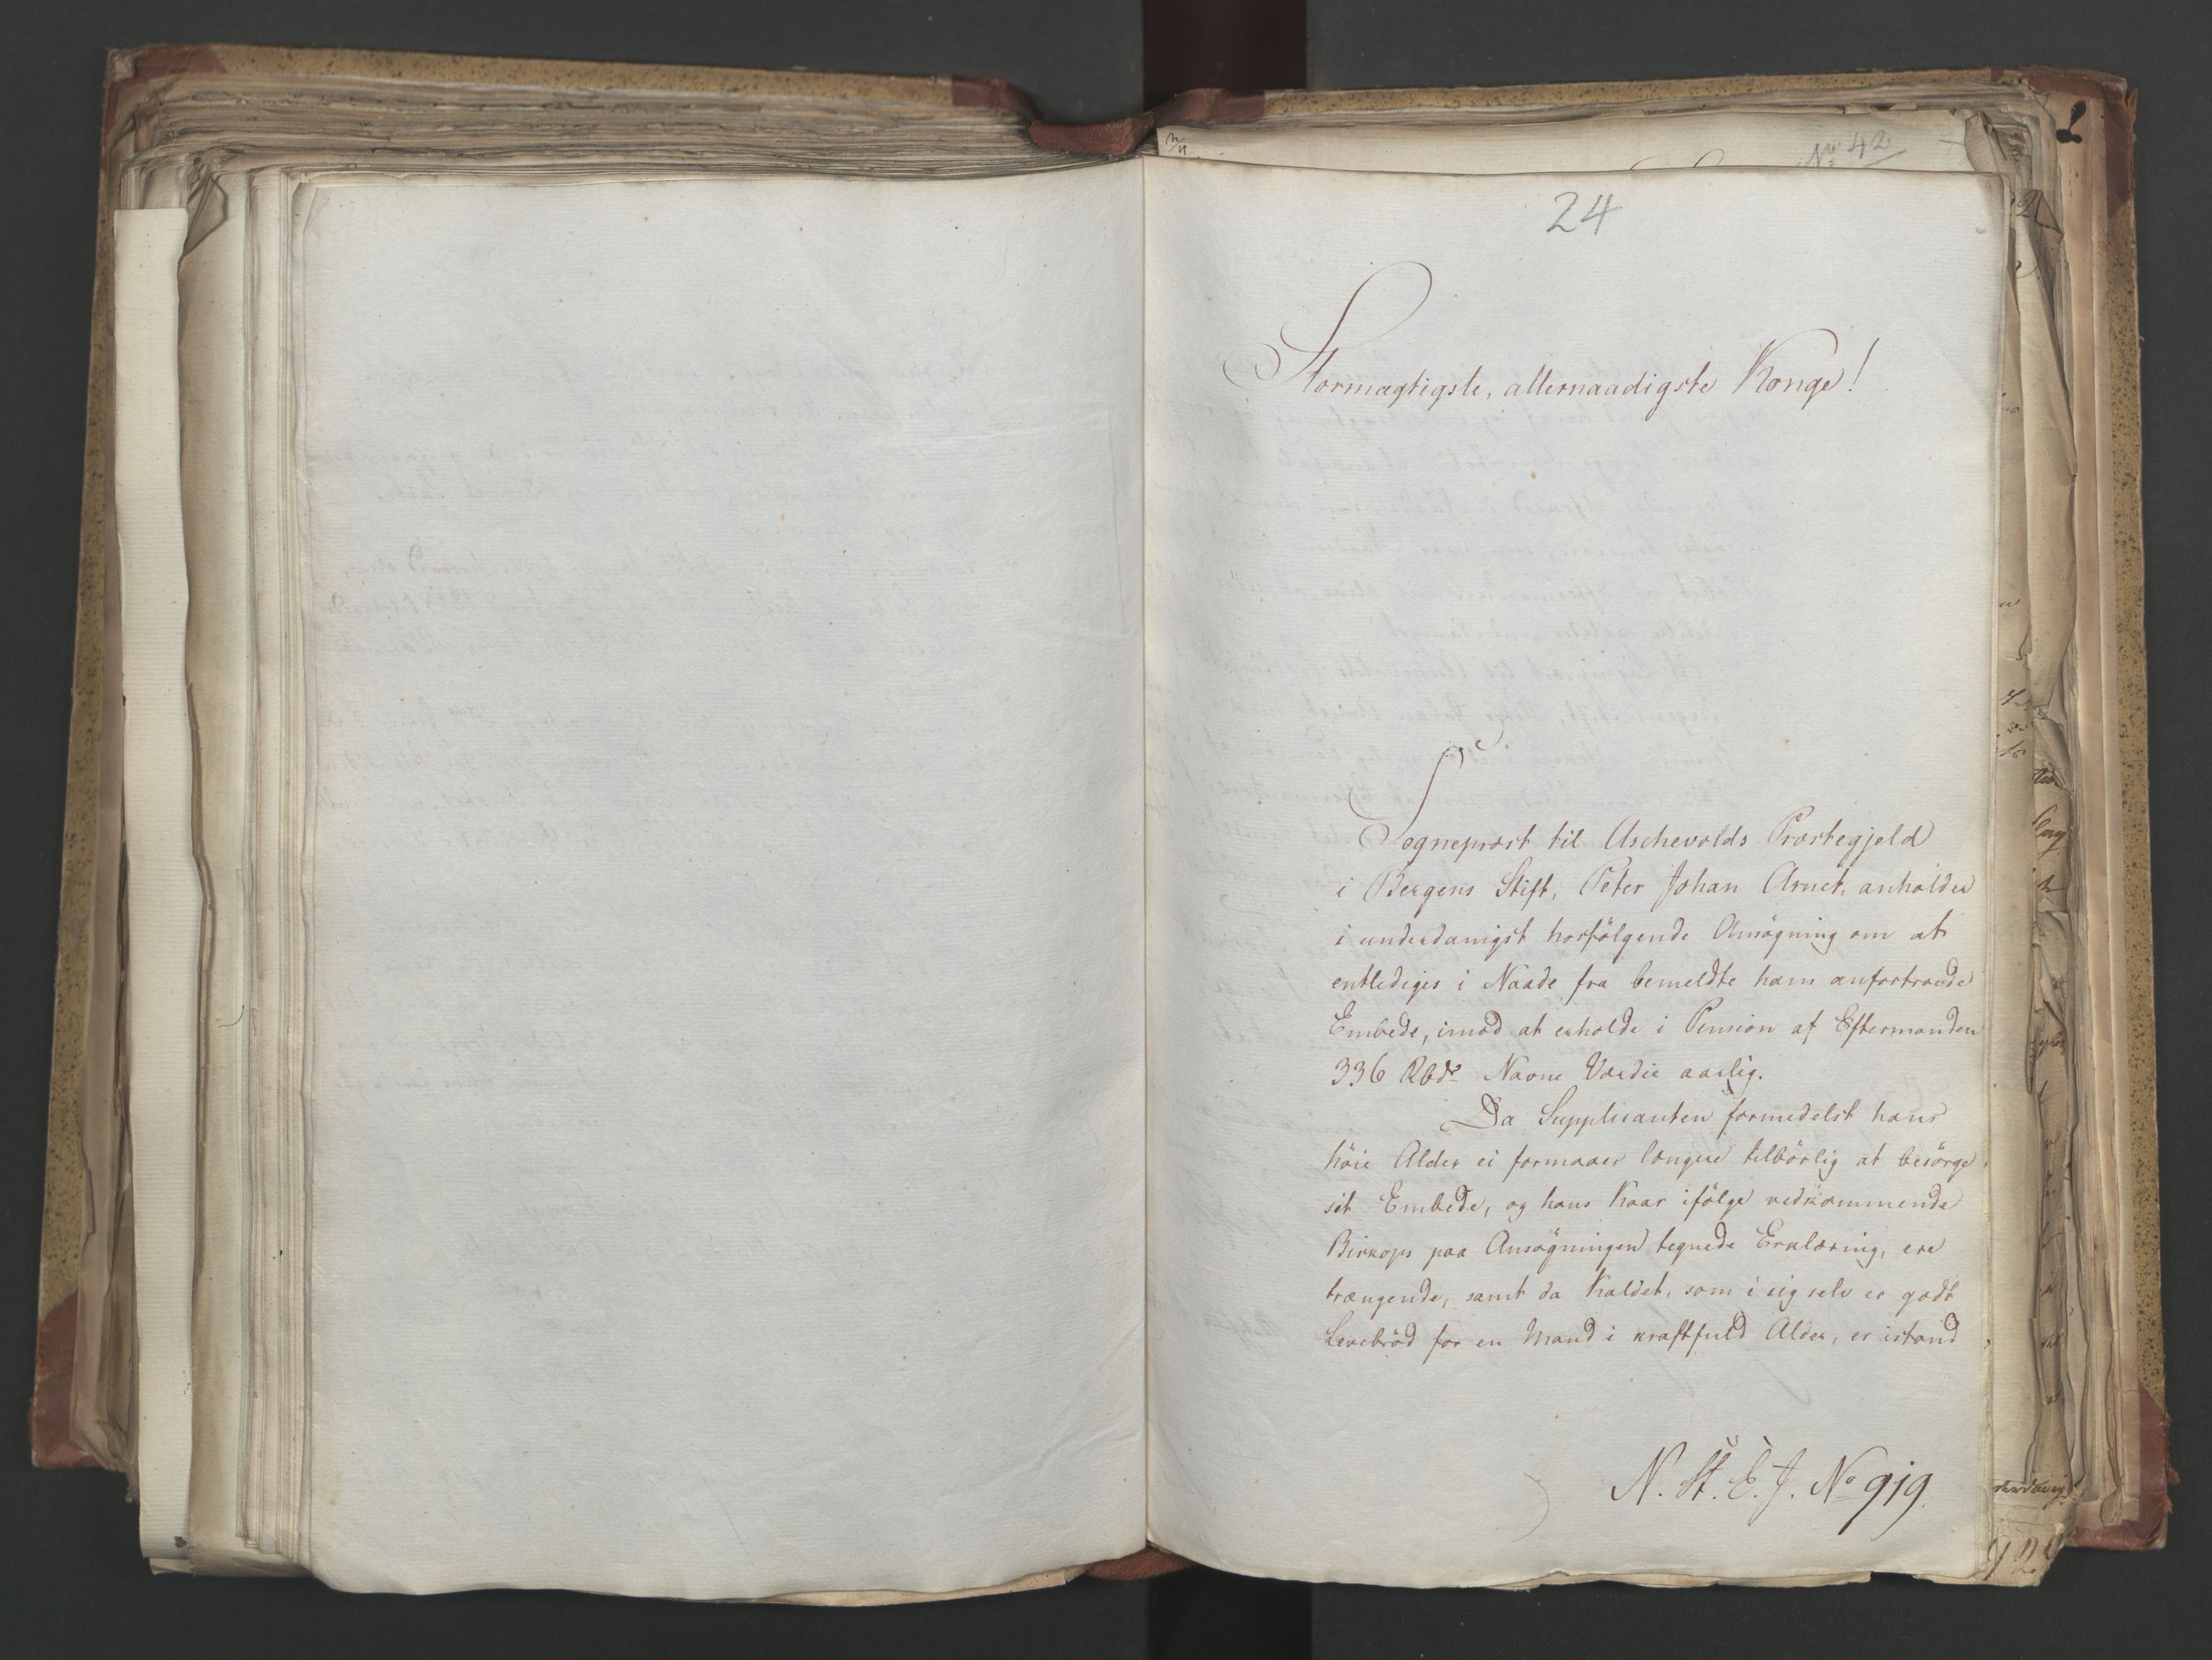 No 42
24
Stormægtigste, allernaadigste Konge!
Sogneprest til Aschevolds Præstegjeld
i Bergens Stift, Peter Johan Arnet, anholder
i underdanigst hosfölgende Ansögning om at
entlediges i Naade fra bemeldte ham anfortroede
Embede, imod at erholde i Pension af Eftermanden
336 Rbdr Navne Værdie aarlig.
Da Supplicanten formedelst hans
höie Alder ei formaaer længere tilbörlig at besörge
sit Embede, og hans Kaar ifölge vedkommende
Biskops paa Ansögningen tegnede Erklæring, ere
trængende, samt da Kaldet, som i sig selv er godt
Levebröd for en Mand i kraftfuld Alder, er istand
N. St. E. J. No 919.